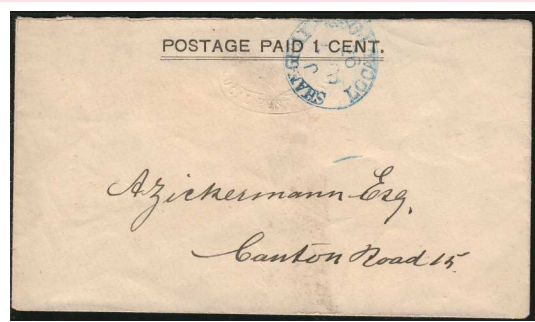 POSTAGE PAID 1 CENT.
SHANGHAI LOCAL POST
A Zickermann Esq.
Canton Road 15.